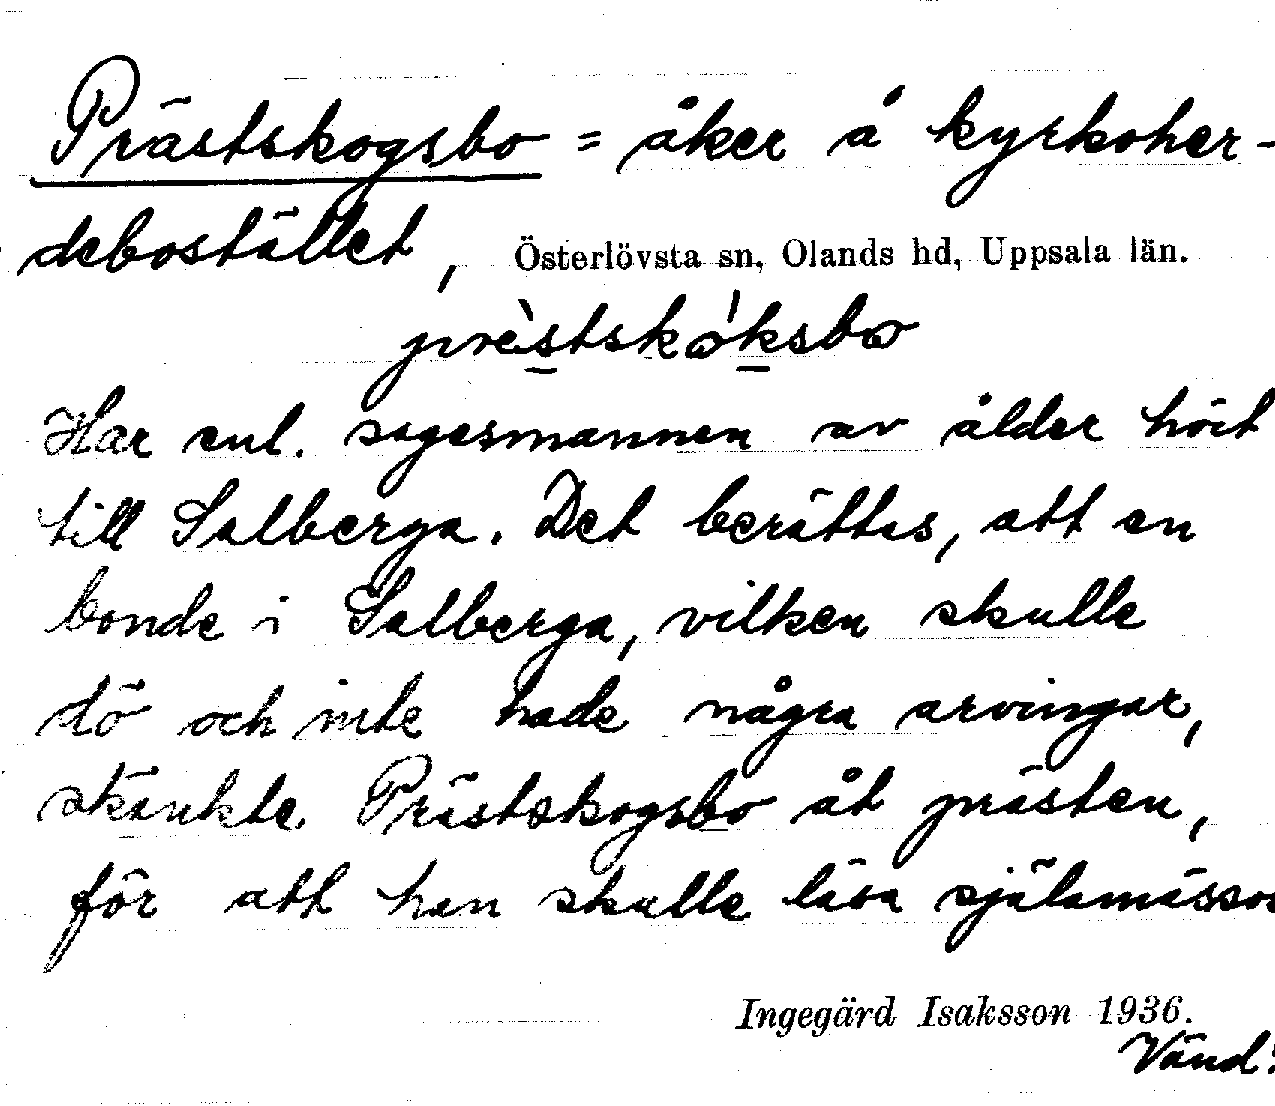 Prästskogsbo = åker å kyrkoher-
debostället, Österlövsta sn, Olands hd, Uppsala län.
prè̀stskó́ksbo
Har enl. sagesmannen av ålder hört
till Salberga. Det berättas, att en
bonde i Salberga, vilken skulle
dö och inte hade några arvingar,
skänkte Prästskogsbo åt prästen,
för att han skulle läsa själamässor
Ingegärd Isaksson 1936.
Vänd!